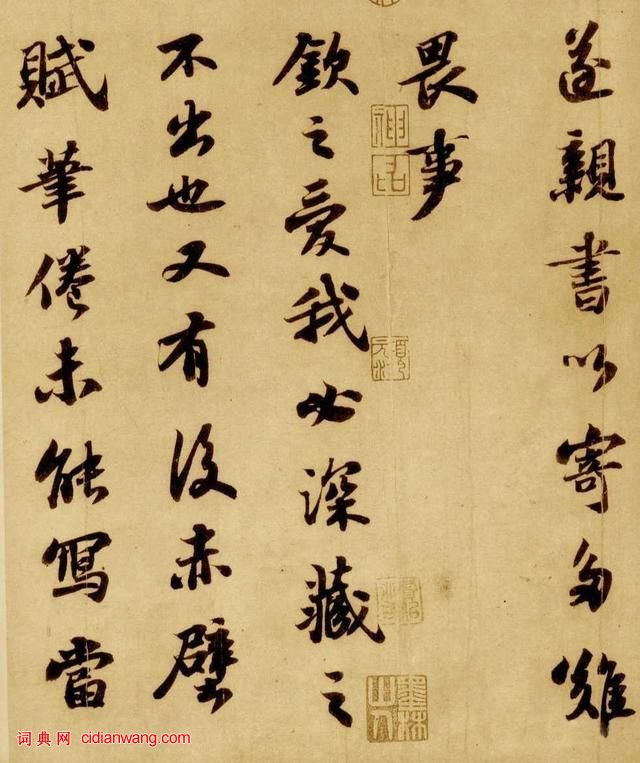 遂親書以寄多難
畏事
欽之愛我必深藏之
不出也又有後赤壁
賦筆倦未能寫當
神品
墨林山人
词典网 cidianwang.com